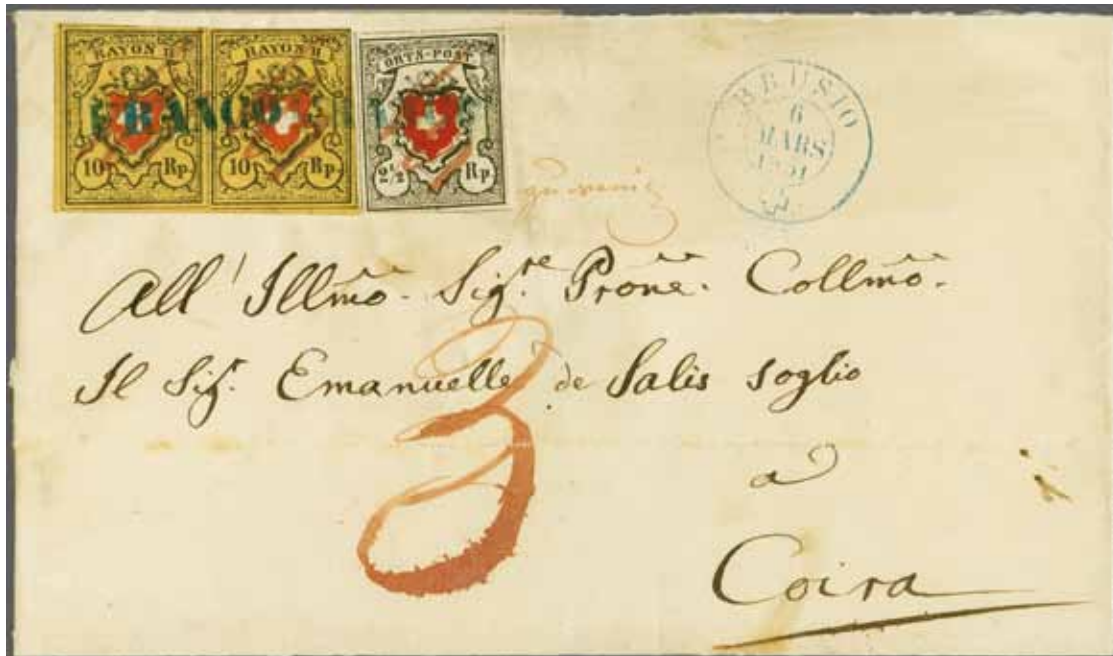 RAYON II RAYON II ORTS-POST
FRANCO
10 Rp. 10 Rp. 2 1/2 Rp.
BRUSIO
6
MARS
1851
All' Illmo. Sigre. Prone. Collmo.
Il Sigr. Emanuelle de Salis soglio
3
a
Coira